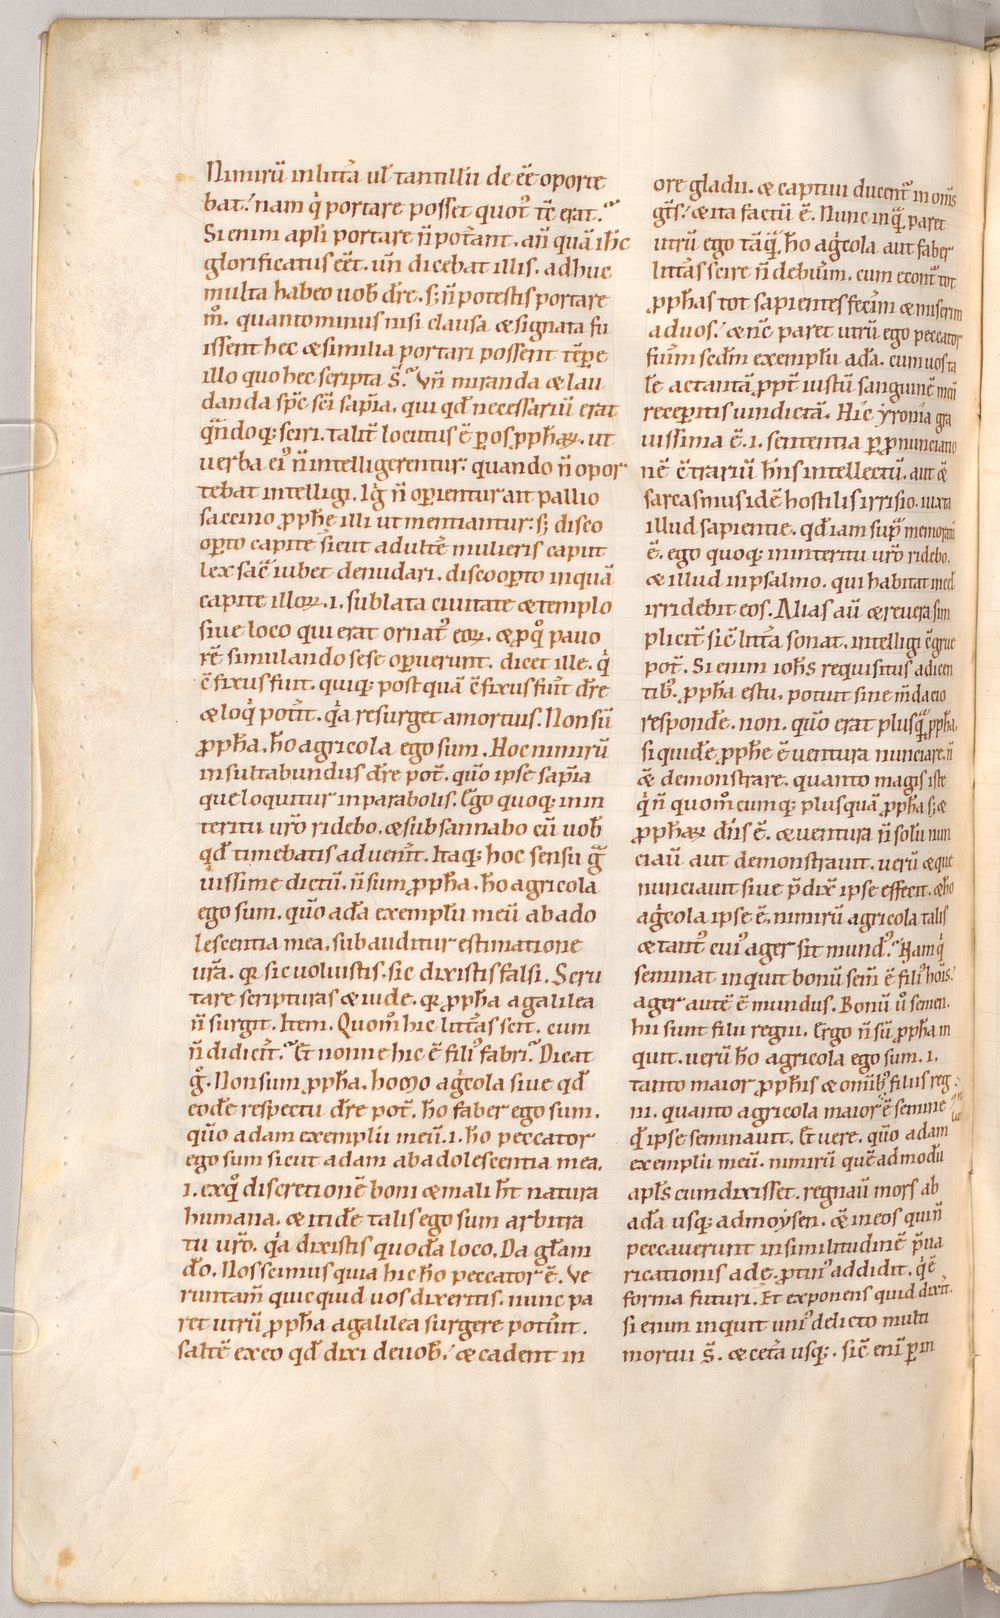 Nimirū in littā ul̄ tantillū de eē oporte
bat. nam q̇ portare posset quot tē erat.
Si enim apl̄i portare n̄ potant. anq̄ quā ih̄c
glorificatus eēt. un̄ dicebat illis. adhuc
multa habeo uob̄ dr̄e. s; n̄ potestis portare
m̊. quanto minus nisi clausa æ signata fu
issent hec æ similia portari possent tēpe
illo quo hec scripta s̄. Vn̄ miranda æ lau
danda spc̄ sc̄i sapīa. qui qd̄ necessariū erat
qn̄doq; sciri. talit̄ locutus ē p os pph̄aꝝ. ut
uerba ei' n̄ intelligerentur: quando n̄ opor
tebat intelligi. Ig̊ n̄ opientur ait pallio
saccino pph̄e illi ut mentiantur: s; disco
opto capite sicut adultē mulieris caput
lex sac̄ iubet denudari. discoopto inquā
capite illoꝝ. i. sublata ciuitate æ templo
siue loco qui erat ornat' eoꝝ. æ p q̊ pauo
rē simulando sese opuerunt. dicet ille. q̇
c̄fixus fuit. quiq; post quā c̄fixus fuit̄ dr̄e
æ loq̇ potit̄. q̇a resurget a mortuis. Non sū
pph̄a. h̄o agricola ego sum. Hoc nimirū
insultabundus dr̄e pot̄. quō ipse sapīa
que loquitur in parabolis. Ego quoq; in in
teritu ur̄o ridebo. æ subsannabo cū uob̄
qd̄ timebatis aduenit̄. Itaq; hoc sensu g̃
uissime dictū. n̄ sum pph̄a. h̄o agricola
ego sum. quō ada exemplū meū ab ado
lescentia mea. subauditur estimatione
ur̄a. qr sic uoluistis. sic dixistis falsi. Scru
tare scripturas æ uide. qr pph̄a a galilea
n̄ surgit. Item. Quom̊ hic littās scit. cum
n̄ didicit̄. Et nonne hic ē fili' fabri. Dicat
g̊. Non sum pph̄a. homo ag̓cola siue qd̄
eod̄e respectu dr̄e pot̄. h̄o faber ego sum.
quō adam exemplū meū. i. h̄o peccator
ego sum sicut adam ab adolescentia mea.
i. ex q̊ discretionē boni æ mali h̄t natura
humana. æ itid̄e talis ego sum arbitra
tu ur̄o. q̇a dixistis quoda loco. Da gl̄am
d̄o. Nos scimus quia hic h̄o peccator ē. Ve
runtam̄ quicquid uos dixeritis. nunc pa
ret utrū pph̄a a galilea surgere potuit̄.
saltē ex eo qd̄ dixi de uob̄. æ cadent in
ore gladii. æ captiui ducent' in om̄s
gt̄s. æ ita factū ē. Nunc inq̃. paret
utrū ego tāq̃. h̄o ag̓cola aut faber
littās scire n̄ debuim̄. cum econt̄ tot
pph̄as tot sapientes fecim̄ æ miserim
ad uos. æ nc̄ paret utrū ego peccator
fuim̄ sedm̄ exemplū ada. cum uos ta
le ac tantā ppt̄ iustū sanguinē meū
receperitis uindictā. Hic yronia gra
uissima ē. i. sententia p pnunciatio
nē c̄trariū hn̄s intellectū. aut ē
sarcasmus idē hostilis irrisio. iuxta
illud sapientie. qd̄ iam sup̄ memoratū
ē. ego quoq; in interitu ur̄o ridebo.
æ illud in psalmo. qui habitat in cel̄
irridebit eos. Alias aū æ reuera sim
plicit̄ sic̄ littā sonat. intelligi c̄grue
pot̄. Si enim ioh̄s requisitus a dicen
tib'. pph̄a es tu. potuit sine m̄dacio
respond̄e. non. quō erat plusq̃ pph̄a.
siquid̄e pph̄e ē uentura nunciare. n̄
āē demonstrare. quanto magis iste
q̇ n̄ quom̊cumq; plus quā pph̄a s; æ
pph̄aꝝ dn̄s ē. æ uentura n̄ solū nun
ciaū aut demonstrauit. uerū æ que
nunciauit siue p̄dix̄ ipse effecit. æ h̄o
ag̓cola ipse ē. nimirū agricola talis
æ tant' cui' ager sit mund'. Nam q̇
seminat inquit bonū sem̄ ē fili' hoīs.
ager autē ē mundus. Bonū u̇ semen.
hii sunt filii regni. Ergo n̄ sū pph̄a in
quit. uerū h̄o agricola ego sum. i.
tanto maior pph̄is æ omīb' filius reg
ni. quanto agricola maior ē semine
qd̄ ipse seminauit. Et uere. quō adam
exemplū meū. nimirū quē ad modū
apl̄s cum dixisset. regnaū mors ab
ada usq; ad moysen. æ in eos qui n̄
peccauerunt in similitudinē p̄ua
ricationis ade. ptin' addidit. q̇ ē
forma futuri. Et exponens quid dixit̄.
si enim inquit uni' delicto multi
mortui s̄. æ cet̄a usq;. sic̄ enī p in